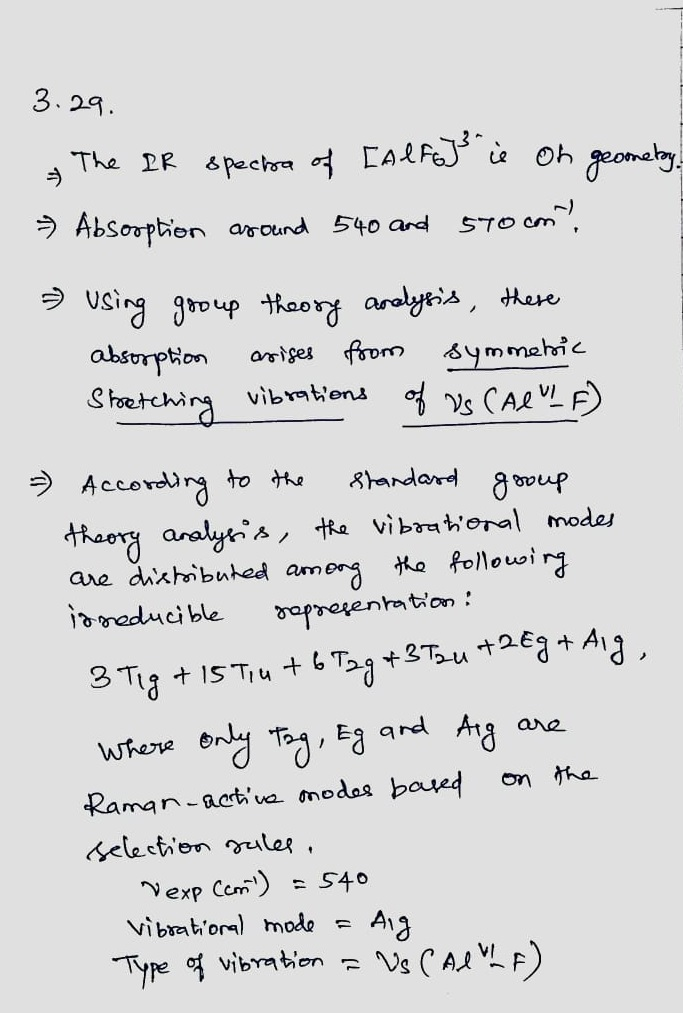 3.29.
⇒ The IR spectra of [AlF6]3- is Oh geometry.
⇒ Absorption around 540 and 570 cm-1.
⇒ Using group theory analysis, these
absorption arises from symmetric
Stretching vibrations of νs (AlVI-F)
⇒ According to the standard group
theory analysis, the vibrational modes
are distributed among the following
irreducible representation:
3 T1g + 15 T1u + 6 T2g + 3 T2u + 2Eg + A1g,
Where only T2g, Eg and A1g are
Raman-active modes based on the
selection rules.
νexp (cm-1) = 540
Vibrational mode = A1g
Type of vibration = νs (AlVI-F)